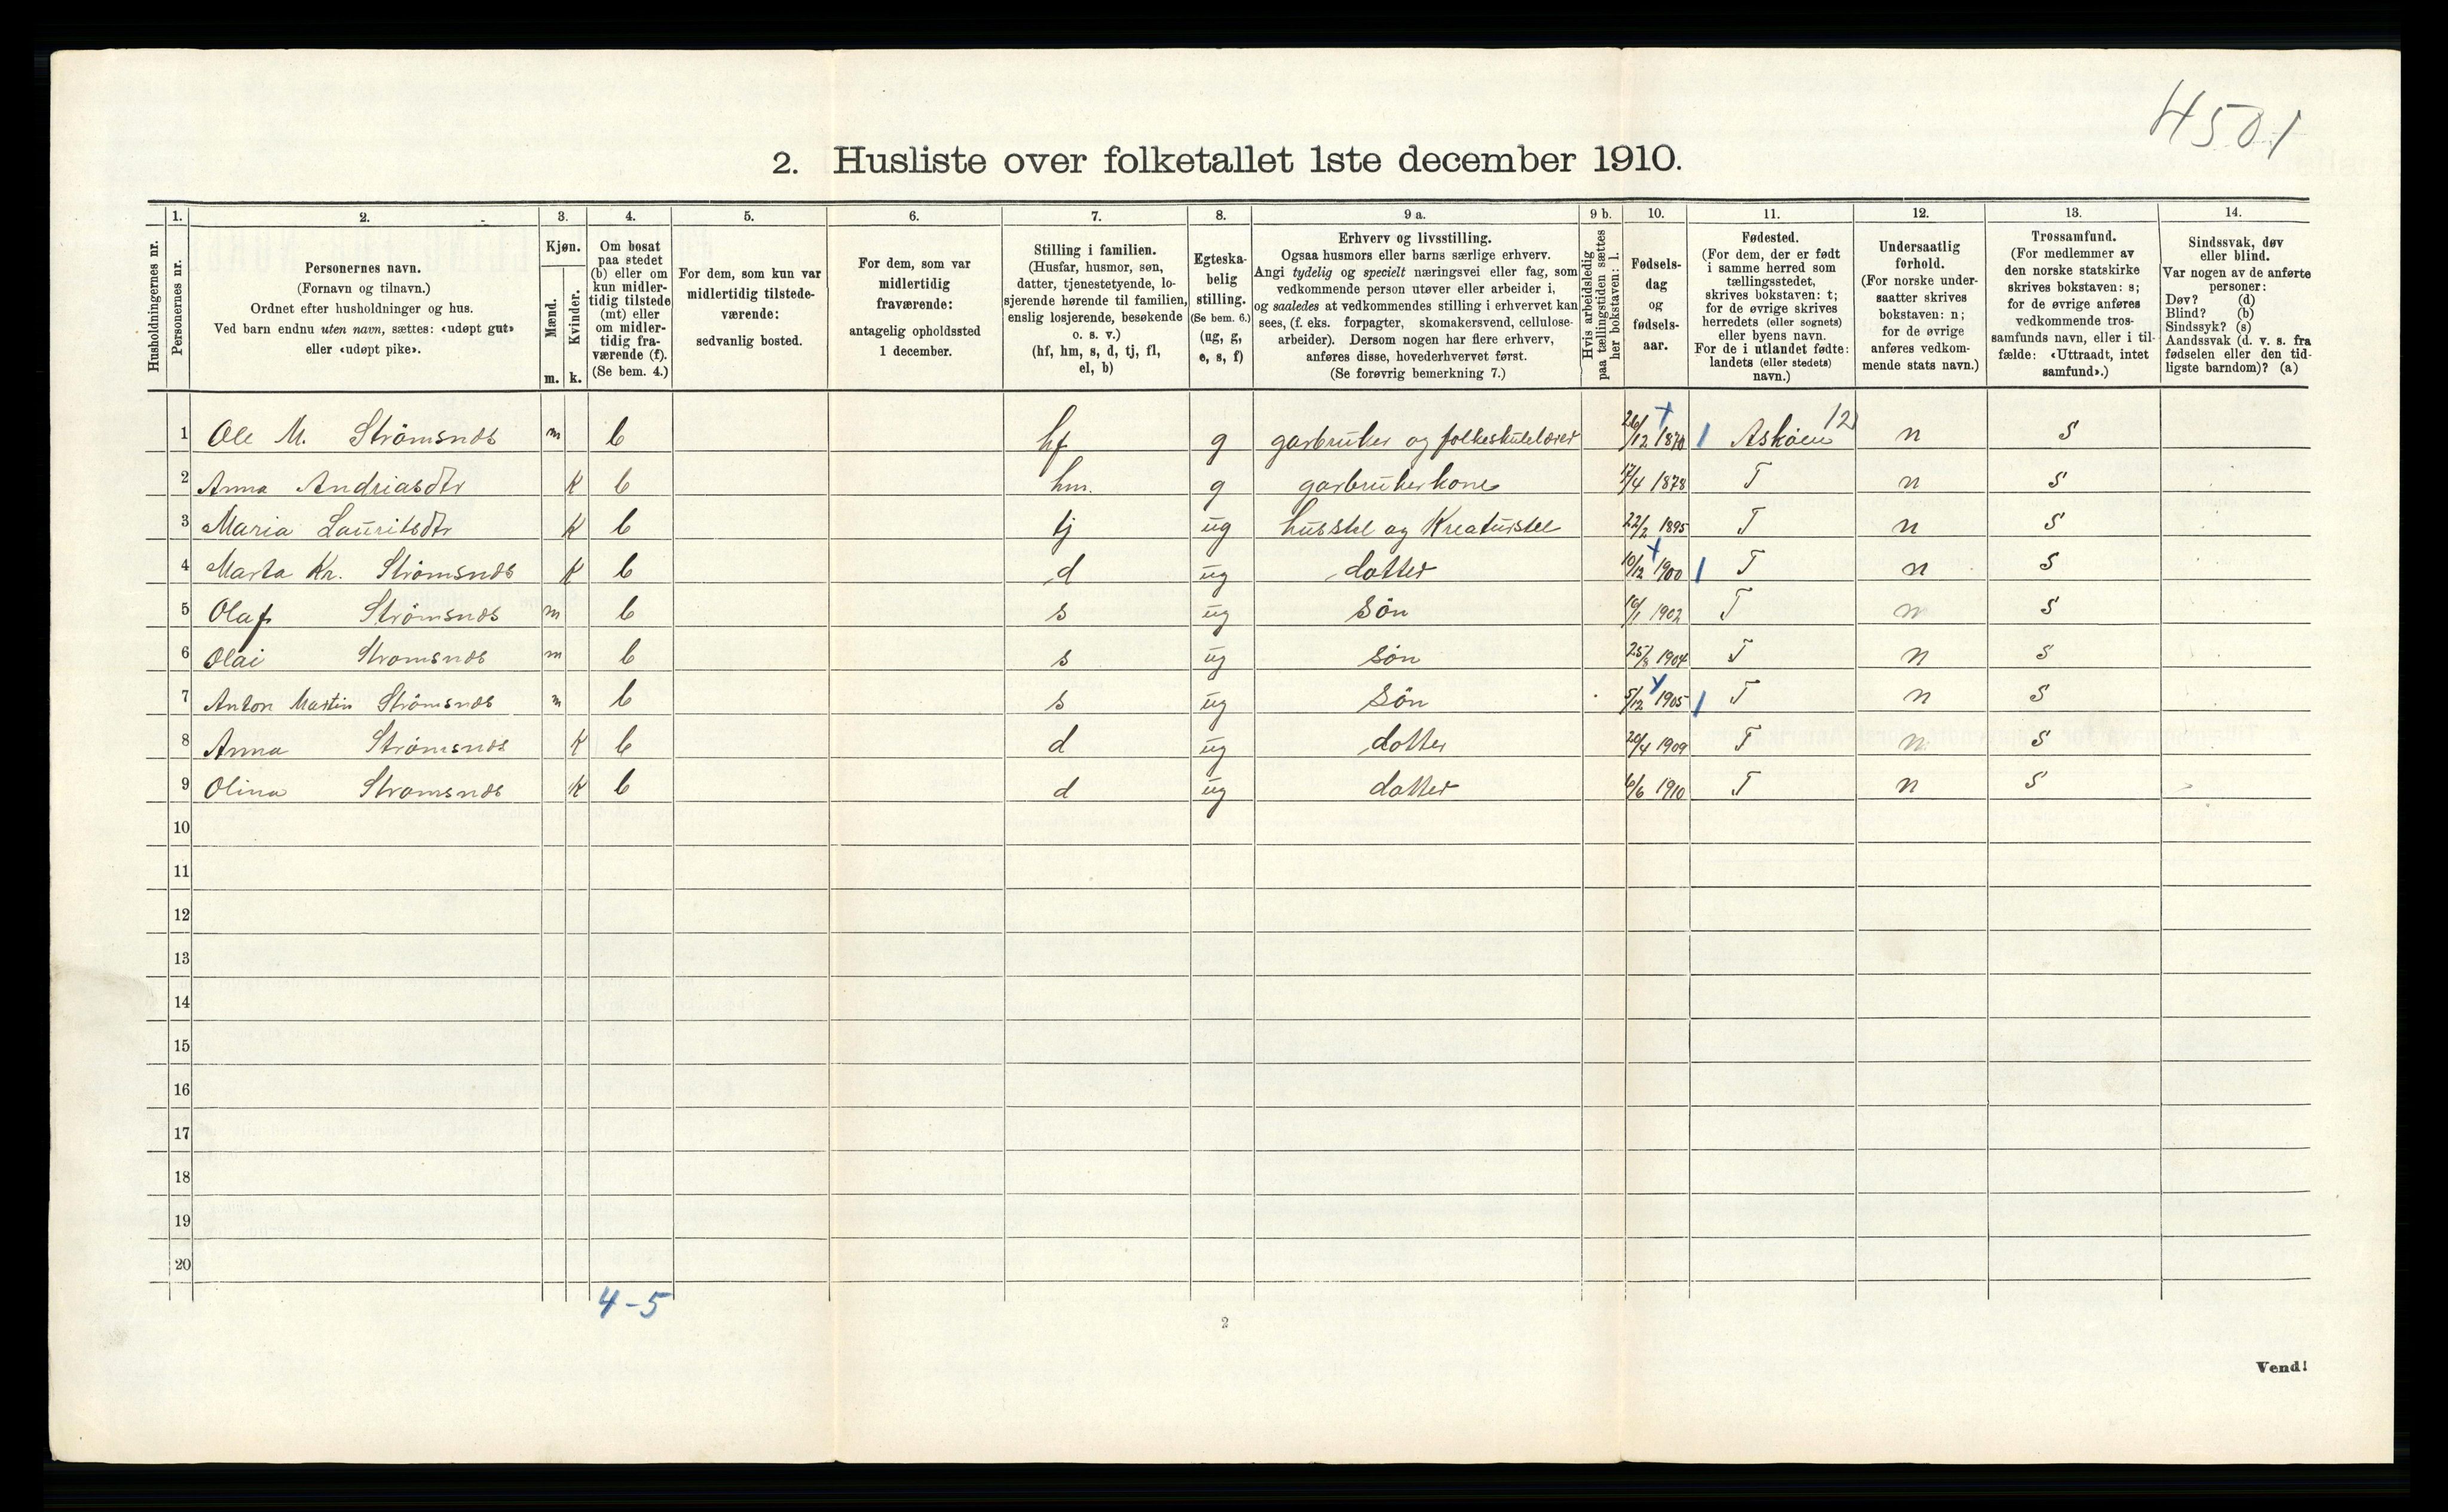 4501
2. Husliste over folketallet 1ste december 1910.
1. 2. 3. 4. 5. 6. 7. 8. 9 a. 9 b. 10. 11. 12. 13. 14.
Husholdningernes nr.
Personernes nr.
Personernes navn.
(Fornavn og tilnavn.)
Ordnet efter husholdninger og hus.
Ved barn endnu uten navn, sættes: «udøpt gut»
eller «udøpt pike».
Kjøn.
Mænd.
Kvinder.
m. k.
Om bosat
paa stedet
(b) eller om
kun midler-
tidig tilstede
(mt) eller
om midler-
tidig fra-
værende (f).
(Se bem. 4.)
For dem, som kun var
midlertidig tilstede-
værende:
sedvanlig bosted.
For dem, som var
midlertidig
fraværende:
antagelig opholdssted
1 december.
Stilling i familien.
(Husfar, husmor, søn,
datter, tjenestetyende, lo-
sjerende hørende til familien,
enslig losjerende, besøkende
o. s. v.)
(hf, hm, s, d, tj, fl,
el, b)
Egteska-
belig
stilling.
(Se bem. 6.)
(ug, g,
e, s, f)
Erhverv og livsstilling.
Ogsaa husmors eller barns særlige erhverv.
Angi tydelig og specielt næringsvei eller fag, som
vedkommende person utøver eller arbeider i,
og saaledes at vedkommendes stilling i erhvervet kan
sees, (f. eks. forpagter, skomakersvend, cellulose-
arbeider). Dersom nogen har flere erhverv,
anføres disse, hovederhvervet først.
(Se forøvrig bemerkning 7.)
Hvis arbeidsledig
paa tællingstiden sættes
her bokstaven: l.
Fødsels-
dag
og
fødsels-
aar.
Fødested.
(For dem, der er født
i samme herred som
tællingsstedet,
skrives bokstaven: t;
for de øvrige skrives
herredets (eller sognets)
eller byens navn.
For de i utlandet fødte:
landets (eller stedets)
navn.)
Undersaatlig
forhold.
(For norske under-
saatter skrives
bokstaven: n;
for de øvrige
anføres vedkom-
mende stats navn.)
Trossamfund.
(For medlemmer av
den norske statskirke
skrives bokstaven: s;
for de øvrige anføres
vedkommende tros-
samfunds navn, eller i til-
fælde: «Uttraadt, intet
samfund».)
Sindssvak, døv
eller blind.
Var nogen av de anførte
personer:
Døv? (d)
Blind? (b)
Sindssyk? (s)
Aandssvak (d. v. s. fra
fødselen eller den tid-
ligste barndom)? (a)
1 Ole M. Strömsnes m b hf g garbruker og folkeskulelærer 26/12 1870 Askøen 12 n S
2 Anna Andriasdtr K b hm. g garbrukerkone 17/4 1878 T n S
3 Maria Lauritsdtr K b tj ug husstel og Kreaturstel 22/2 1895 T n S
4 Marta Kr. Strömsnes K b d ug datter 10/12 1900 T n S
5 Olaf Strömsnes m b s ug Sön 10/1 1902 T n S
6 Olai Stromsnes m b s ug Sön 25/8 1904 T n S
7 Anton Martin Strömsnes m b s ug Sön 5/12 1905 T n S
8 Anna Strömsnes K b d ug datter 20/4 1909 T n S
9 Olina Stromsnes K b d ug datter 6/6 1910 T n S
10
11
12
13
14
15
16
17
18
19
20
4-5
2
Vend!